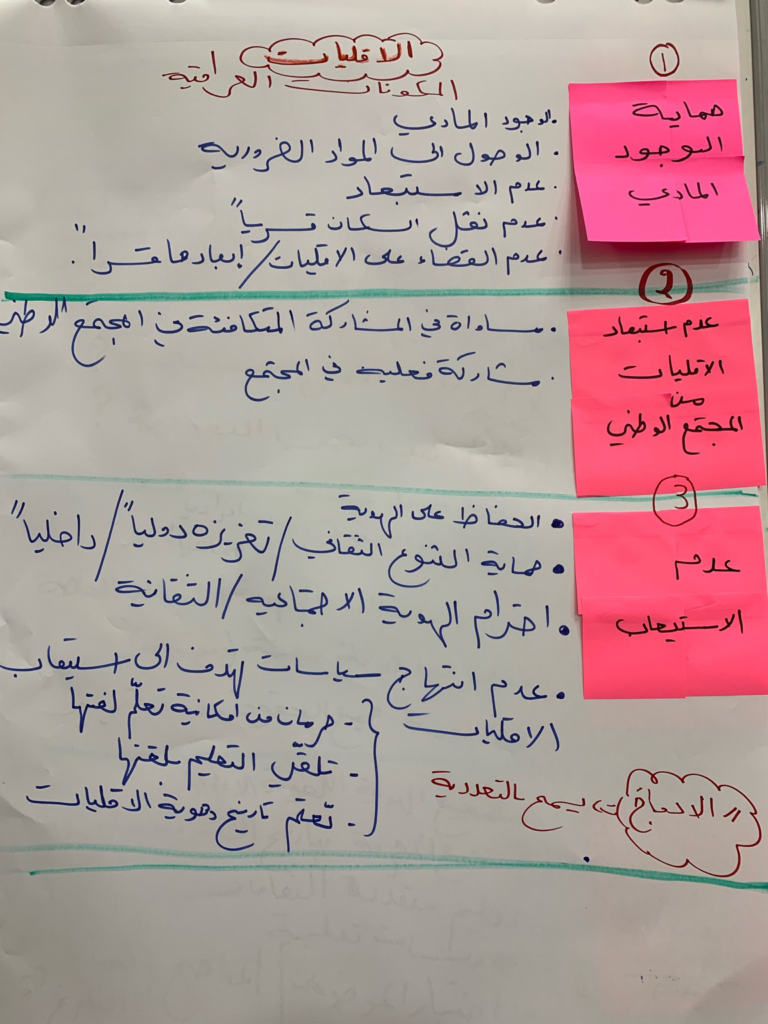 الاقليات
المكونات العراقية
١
حماية
الوجود
المادي
الوجود المادي
. الوصول الى المواد الضرورية
. عدم الاستبعاد
. عدم نقل السكان قسرياً
. عدم القضاء على الاقليات / إبعادها قسراً".
2
عدم استبعاد
الاقليات
من
المجتمع الوطني
. مساواة في المشاركة المتكافئة في المجتمع الوطني
. مشاركة فعليه في المجتمع
3
عدم
الاستيعاب
• الحفاظ على الهوية
• حماية التنوع الثقافي / تعزيزه دولياً / داخلياً
• احترام الهوية الاجتماعيه / الثقافية
• عدم انتهاج سياسات تهدف الى استيعاب
الاقليات
- حرمان من امكانية تعلّم لغتها
- تلقّي التعليم بلغتها
- تعلم تاريخ وهوية الاقليات
"الاندماج يسمح بالتعددية